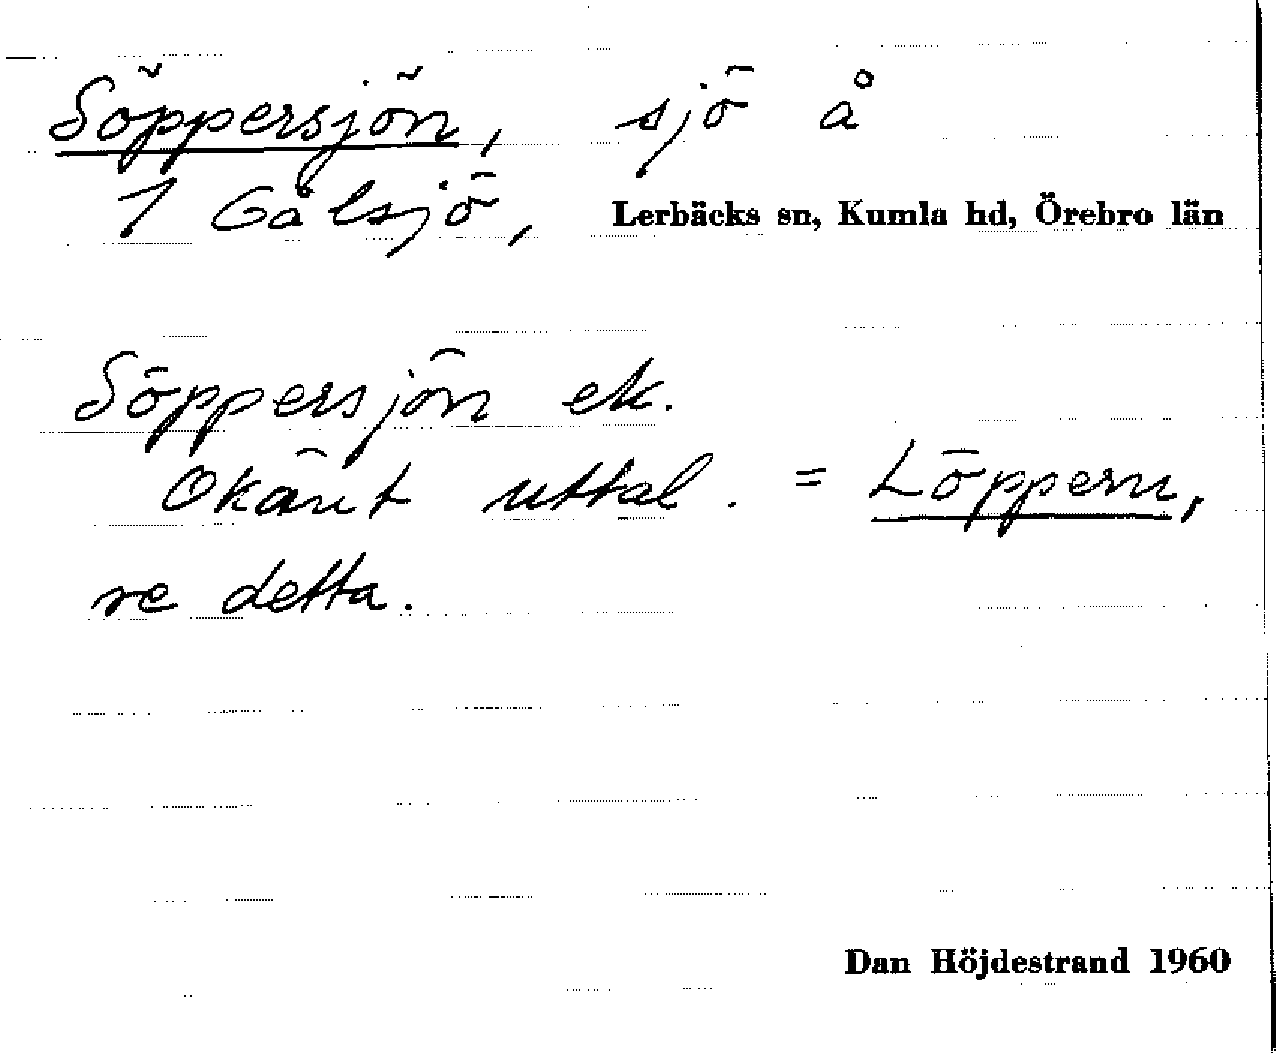 Söppersjön, sjö å
1 Gålsjö, Lerbäcks sn, Kumla hd, Örebro län
Söppersjön ek.
Okänt uttal. = Löppern,
se detta.
Dan Höjdestrand 1960